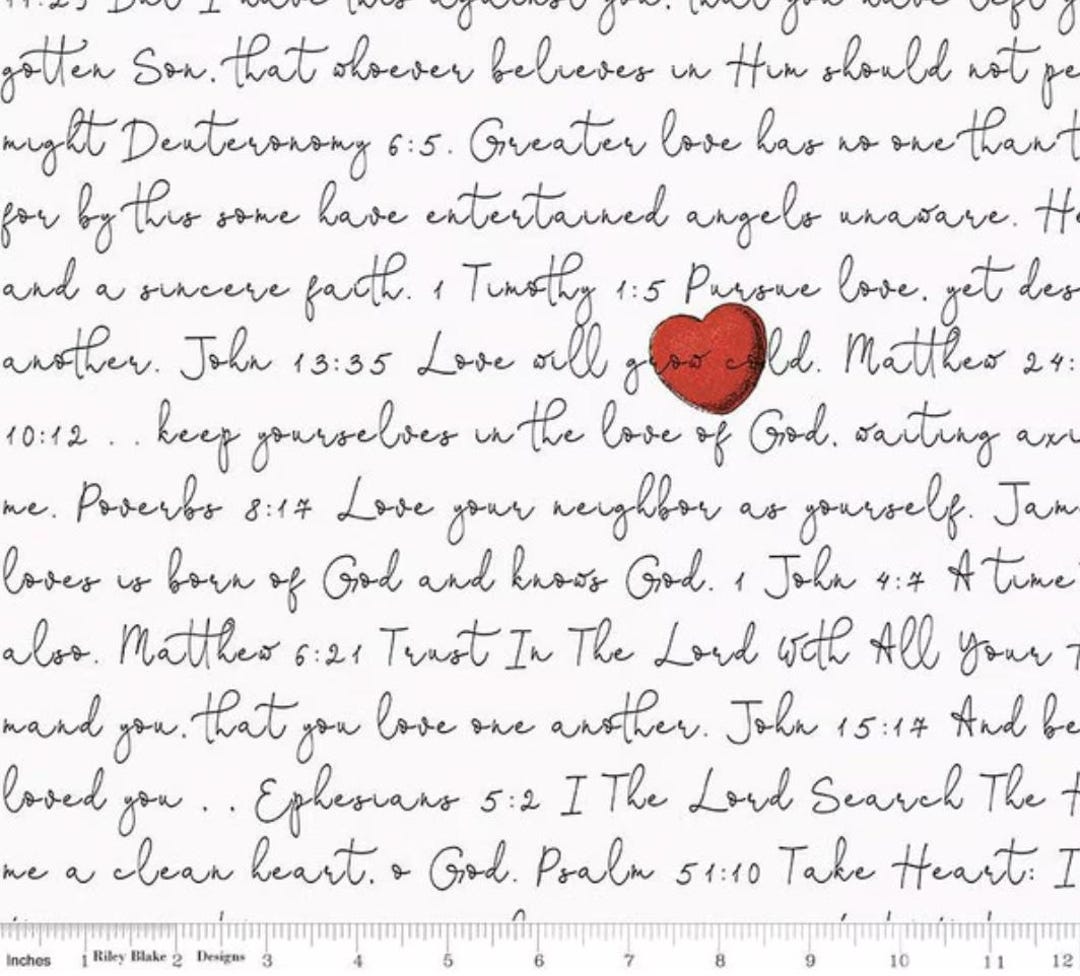 11:25 But I have this against you, that you have left
gotten Son, that whoever believes in Him should not pe
might Deuteronomy 6:5. Greater love has no one than t
for by this some have entertained angels unaware. He
and a sincere faith. 1 Timothy 1:5 Pursue love, yet des
another. John 13:35 Love will grow cold. Matthew 24:
10:12 . . keep yourselves in the love of God, waiting axi
me. Poverbs 8:17 Love your neighbor as yourself. Jam
loves is born of God and knows God. 1 John 4:7 A time
also. Matthew 6:21 Trust In The Lord With All Your
mand you, that you love one another. John 15:17 And be
loved you . . Ephesians 5:2 I The Lord Search The H
me a clean heart, o God. Psalm 51:10 Take Heart: I
Inches 1 Riley Blake 2 Designs 3 4 5 6 7 8 9 10 11 12